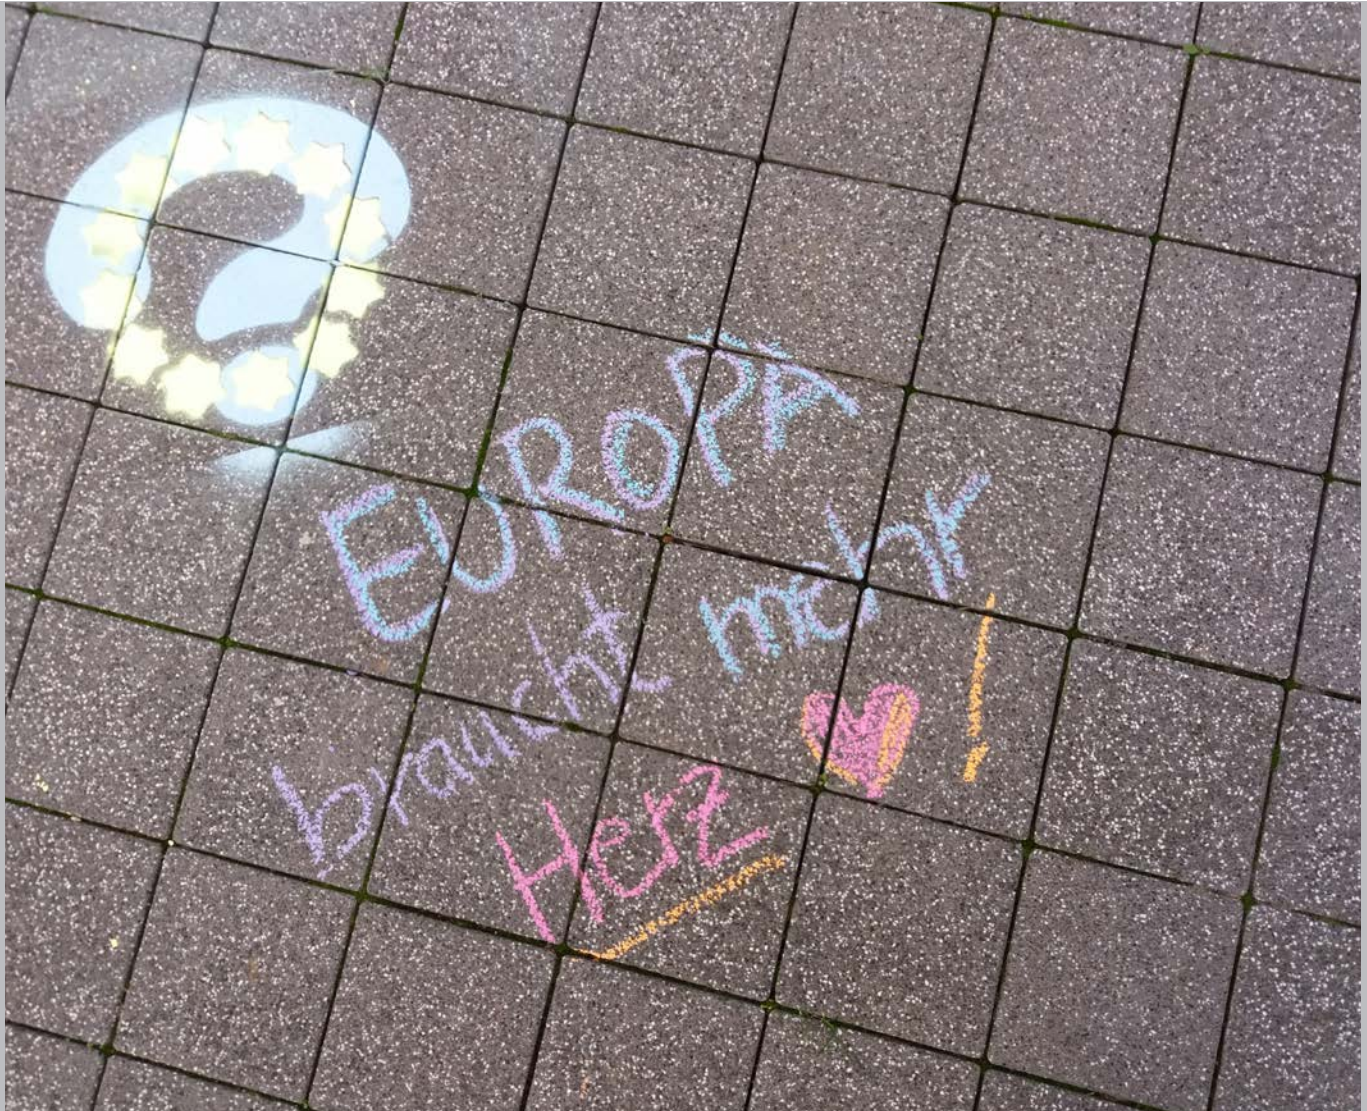 EUROPA
braucht mehr
Herz !